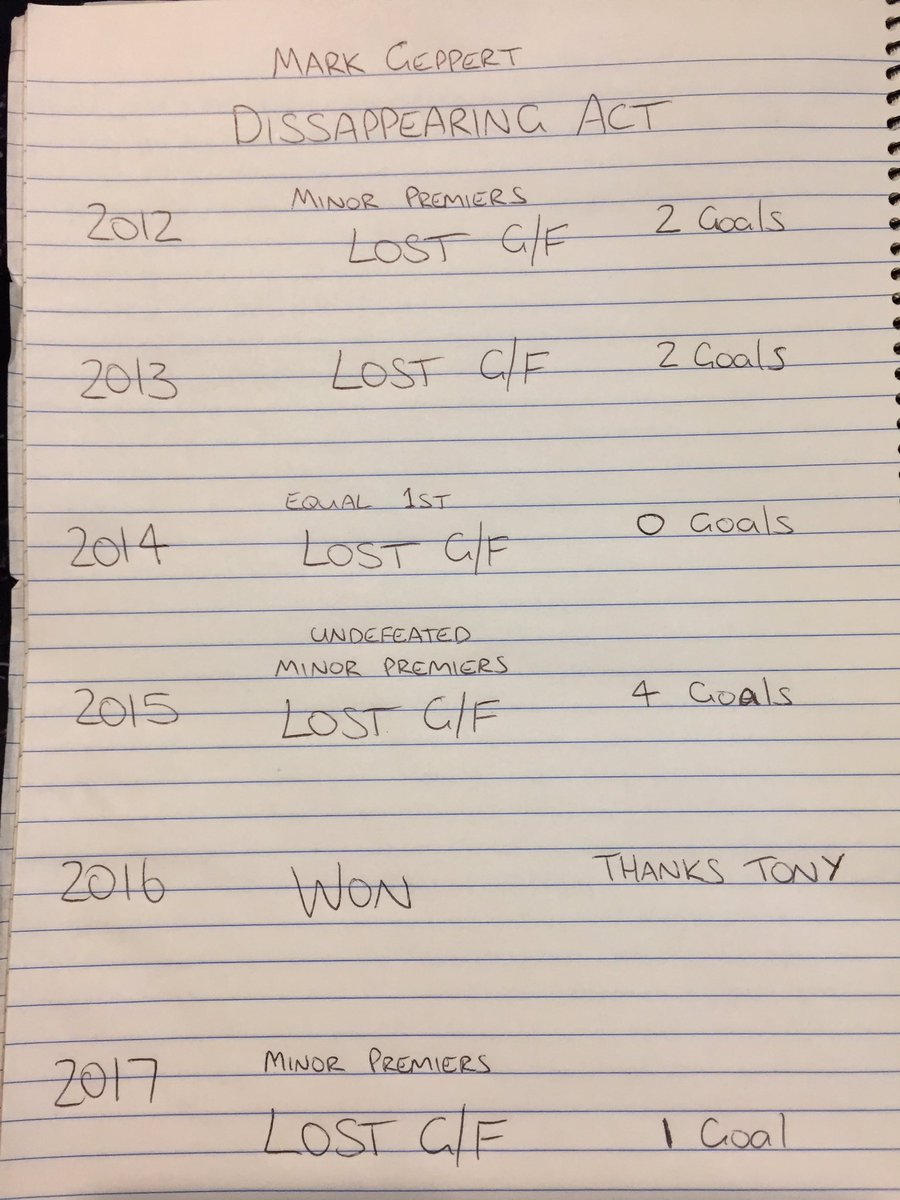 MARK GEPPERT
DISSAPPEARING ACT
MINOR PREMIERS
2012 LOST G/F 2 Goals
2013 LOST G/F 2 Goals
EQUAL 1ST
2014 LOST G/F 0 Goals
UNDEFEATED
MINOR PREMIERS
2015 LOST G/F 4 Goals
2016 WON THANKS TONY
2017 MINOR PREMIERS
LOST G/F 1 Goal